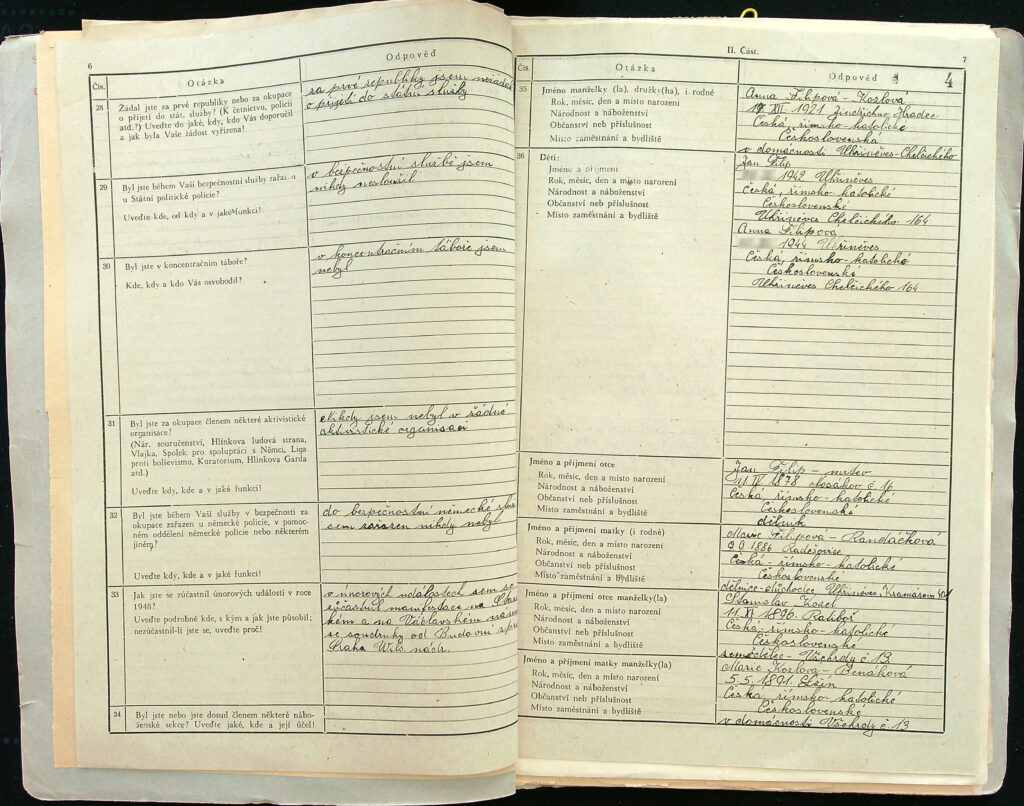 6
Čís.
Otázka
Odpověď
28
Žádal jste za prvé republiky nebo za okupace
o přijetí do stát. služby? (K četnictvu, policii
atd.?) Uveďte do jaké, kdy, kdo Vás doporučil
a jak byla Vaše žádost vyřízena!
za prvé republiky jsem nežádal
o přijetí do státní služby
29
Byl jste během Vaší bezpečnostní služby zařazen
u Státní politické policie?
Uveďte kde, od kdy a v jaké funkci!
v bezpečnostní službě jsem
nikdy nesloužil
30
Byl jste v koncentračním táboře?
Kde, kdy a kdo Vás osvobodil?
v koncentračním táboře jsem
nebyl
31
Byl jste za okupace členem některé aktivistické
organisace?
(Nár. souručenství, Hlinkova ludová strana,
Vlajka, Spolek pro spolupráci s Němci, Liga
proti bolševismu, Kuratorium, Hlinkova Garda
atd.)
Uveďte kdy, kde a v jaké funkci!
Nikdy jsem nebyl v žádné
aktivistické organisaci
32
Byl jste během Vaší služby v bezpečnosti za
okupace zařazen u německé policie, v pomoc-
ném oddělení německé policie nebo některém
jiném?
Uveďte kdy, kde a v jaké funkci!
do bezpečnostní německé
jsem zařazen nikdy nebyl
33
Jak jste se zúčastnil únorových událostí v roce
1948?
Uveďte podrobně kde, s kým a jak jste působil;
nezúčastnil-li jste se, uveďte proč!
v únorových událostech sem se
zůčastnil manifestace na
a na Václavském
se soudruhy od Budovní
Praha Wils. nádr.
34
Byl jste nebo jste dosud členem některé nábo-
ženské sekce? Uveďte jaké, kde a její účel!
II. Část.
7
Čís.
Otázka
Odpověď
4
35
Jméno manželky (la), družky(ha), i rodné
Rok, měsíc, den a místo narození
Národnost a náboženství
Občanství neb příslušnost
Místo zaměstnání a bydliště
Anna Filipová - Kozlová
17. XI. 1921 Jindřichův Hradec
Česká, římsko-katolické
Československá
v domácnosti Uhříněves-Chelčického
36
Děti:
Jméno a příjmení
Rok, měsíc, den a místo narození
Národnost a náboženství
Občanství neb příslušnost
Místo zaměstnání a bydliště
Jan Filip
1942 Uhříněves
Česká, římsko-katolické
Československé
Uhříněves Chelčického 164
Anna Filipova
1944 Uhříněves
Česká, římsko-katolické
Československé
Uhříněves Chelčického 164
Jméno a příjmení otce
Rok, měsíc, den a místo narození
Národnost a náboženství
Občanství neb příslušnost
Místo zaměstnání a bydliště
Jan Filip - mrtev
IV. 1878 Nosákov č.
Česká, římsko-katolické
Československé
dělník
Jméno a příjmení matky (i rodné)
Rok, měsíc, den a místo narození
Národnost a náboženství
Občanství neb příslušnost
Místo zaměstnání a bydliště
Marie Filipová - Randáčková
9.9 1886 Radešovice
Česká - římsko-katolické
Československé
dělnice-důchodce Uhříněves, Kramářova
Jméno a příjmení otce manželky(la)
Rok, měsíc, den a místo narození
Národnost a náboženství
Občanství neb příslušnost
Místo zaměstnání a bydliště
Stanislav Kozel
11. XI 1896. Ratiboř
Česká-římsko-katolické
Československé
zemědělec - Všechrdy č 13
Jméno a příjmení matky manželky(la)
Rok, měsíc, den a místo narození
Národnost a náboženství
Občanství neb příslušnost
Místo zaměstnání a bydliště
Marie Kozlova - Benáková
5.5. 1891.
Česka, římsko-katolické
Československé
v domácnosti Všechrdy č 13